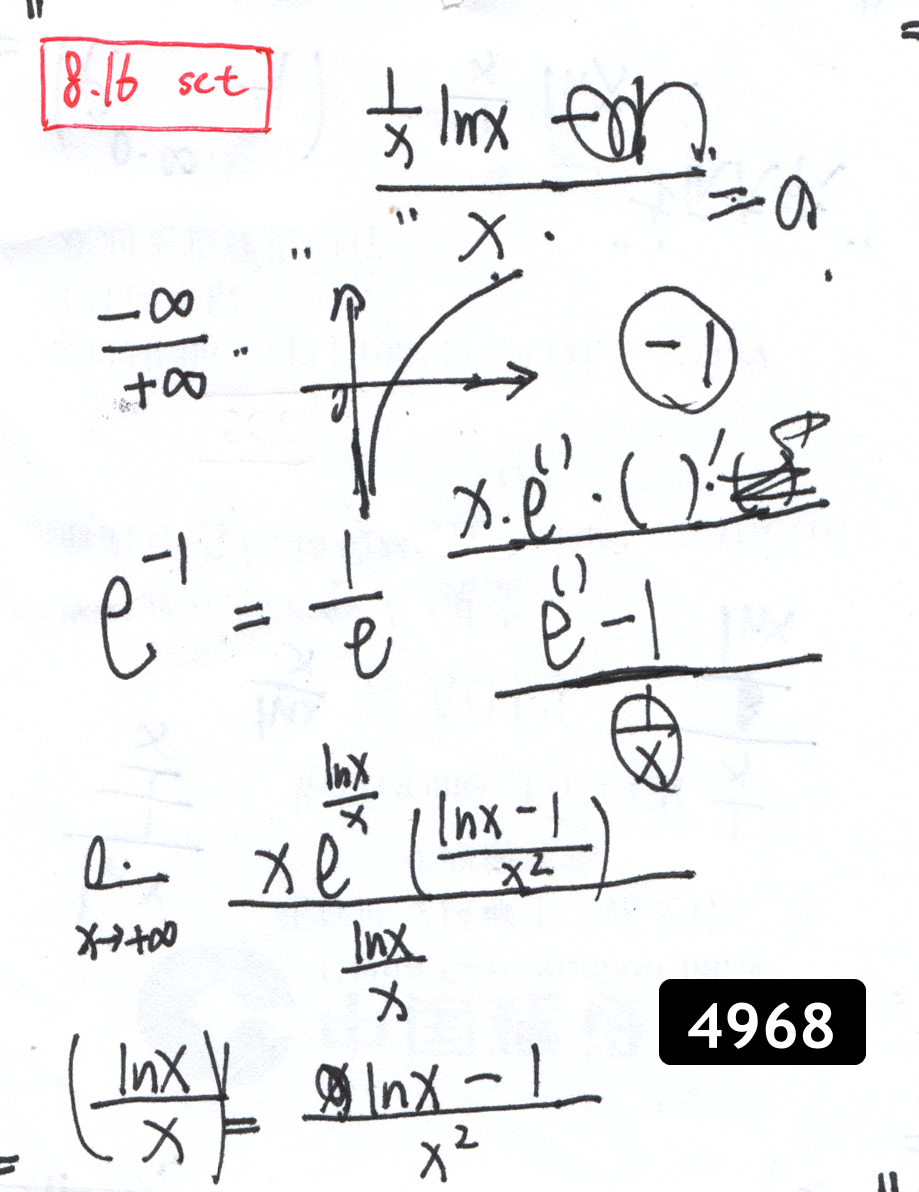 8.16 set
1/x lnx
x = 0
-∞/+∞
0
-1
x·e^( )·( )'·
e^-1 = 1/e
e^( ) - 1
1/x
x→+∞
x e^(lnx/x) ((lnx-1)/x²)
lnx/x
4968
(lnx/x)' = (lnx - 1)/x²